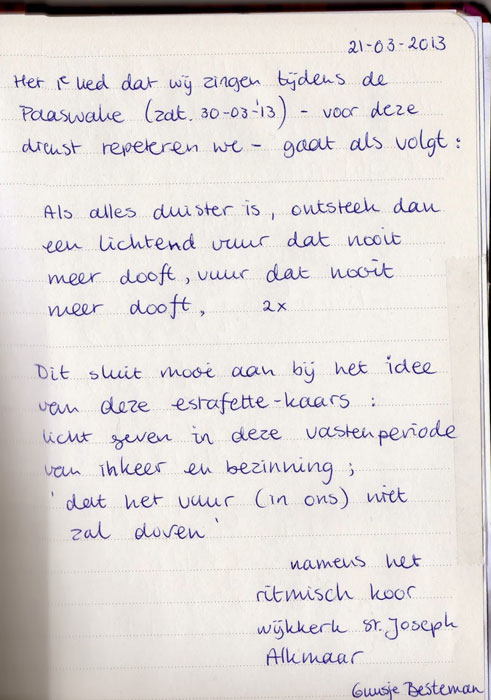 21-03-2013
Het 1e lied dat wij zingen tijdens de
Paaswake (zat. 30-03-'13) - voor deze
dienst repeteren we - gaat als volgt :
Als alles duister is, ontsteek dan
een lichtend vuur dat nooit
meer dooft, vuur dat nooit
meer dooft, 2x
Dit sluit mooi aan bij het idee
van deze estafette-kaars :
licht geven in deze vastenperiode
van inkeer en bezinning ;
'dat het vuur (in ons) niet
zal doven'
namens het
ritmisch koor
wijkkerk st. Joseph
Alkmaar
Guusje Besteman